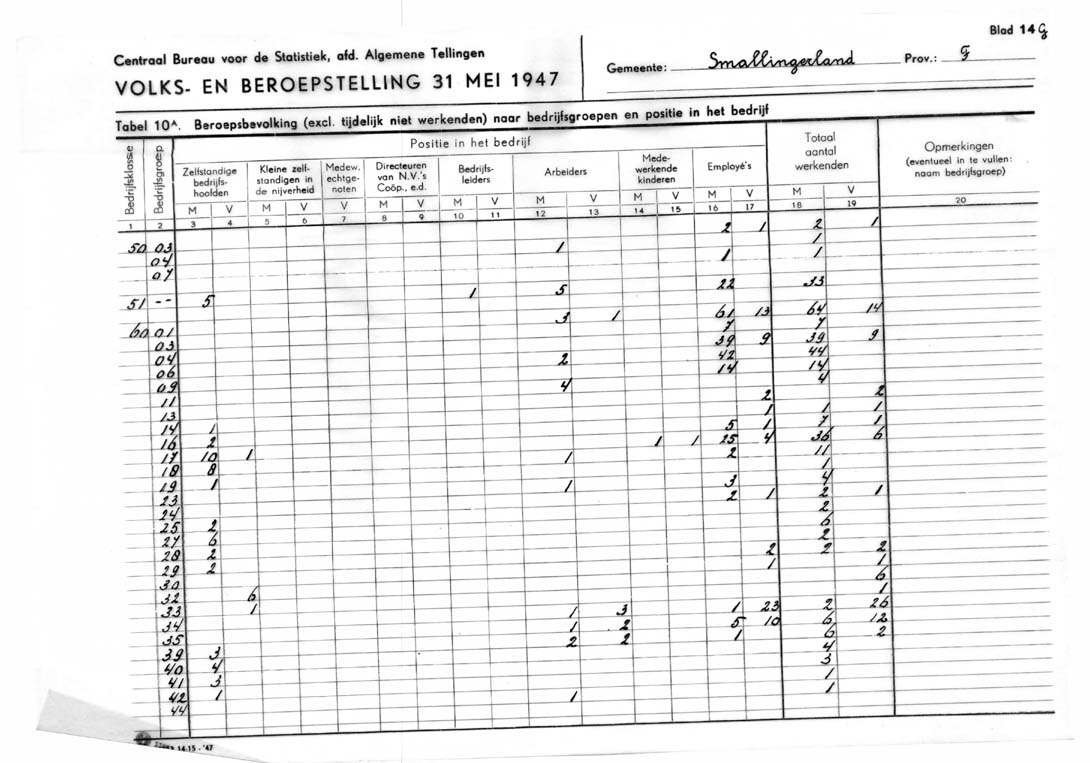 Blad 14 G
Centraal Bureau voor de Statistiek, afd. Algemene Tellingen
VOLKS- EN BEROEPSTELLING 31 MEI 1947
Gemeente: Smallingerland Prov.: F
Tabel 10A. Beroepsbevolking (excl. tijdelijk niet werkenden) naar bedrijfsgroepen en positie in het bedrijf
Bedrijfsklasse
Bedrijfsgroep
Positie in het bedrijf
Zelfstandige
bedrijfs-
hoofden
Kleine zelf-
standigen in
de nijverheid
Medew.
echtge-
noten
Directeuren
van N.V.'s
Coöp., e.d.
Bedrijfs-
leiders
Arbeiders
Mede-
werkende
kinderen
Employé's
Totaal
aantal
werkenden
Opmerkingen
(eventueel in te vullen:
naam bedrijfsgroep)
M V M V V M V M V M V M V M V M V
1 2 3 4 5 6 7 8 9 10 11 12 13 14 15 16 17 18 19 20
50 03 2 1 2 1
04 1 1
07 1 1
51 -- 5 1 5 22 33
60 01 3 1 61 13 64 14
03 7 7
04 39 9 39 9
06 2 42 44
09 14 14
11 4 4
13 2 2
14 1 1 1 1
16 2 5 1 7 1
17 10 1 1 1 25 4 36 6
18 8 1 2 11
19 1 1
23 1 3 4
24 2 1 2 1
25 2 2
27 6 6
28 2 2
29 2 2 2 2
30 1 1
32 6 6
33 1 1
34 1 3 1 23 2 26
35 1 2 5 10 6 12
39 3 2 2 1 6 2
40 4 4
41 3 3
42 1 1
44 1 1
14-15 - '47